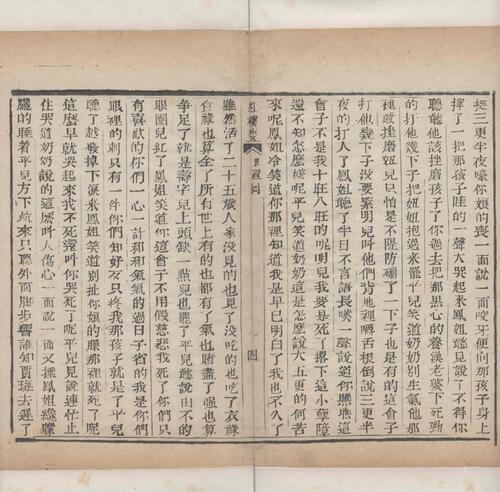 挺三更半夜嚎你娘的喪一面說一面咬牙便向那孩子身上
擰了一把那孩子哇的一聲大哭起來鳳姐聽見說了不得你
聽聽他該挫磨孩子了你過去把那黑心的養漢老婆下死勁
的打他幾下子把妞妞抱過來罷平兒笑道奶奶别生氣他那
裡敢挫磨妞兒只怕是不隄防碰了一下子也是有的這會子
打他幾下子没要緊明兒叫他們背地裡嚼舌根倒說三更半
夜的打人了鳳姐聽了半日不言語長嘆一聲說道你瞧瞧這
會子不是我十旺八旺的呢明兒我要是死了撂下這小孽障
還不知怎麽樣呢平兒笑道奶奶這是怎麽說大五更的何苦
來呢鳳姐冷笑道你那裡知道我是早已明白了我也不久了
紅樓夢 回 四
雖然活了二十五歲人家没見的也見了没吃的也吃了衣祿
食祿也算全了所有世上有的也都有了氣也賭盡了强也算
爭足了就是壽字兒上頭缺一點兒也罷了平兒聽說由不的
眼圈兒紅了鳳姐笑道你這會子不用假慈悲我死了你們只
有喜歡的你們一心一計和和氣氣的過日子省的我是你們
眼裡的刺只有一件你們知好歹只疼我那孩子就是了平兒
聽了越發掉下淚來鳳姐笑道别扯你娘的臊那裡就死了呢
這麽早就哭起來我不死還叫你哭死了呢平兒見說連忙止
住哭道奶奶說的這麽叫人傷心一面說一面又捶鳳姐纔朦
朧的睡着平兒方下炕來只聽外面脚步響誰知賈璉去遲了